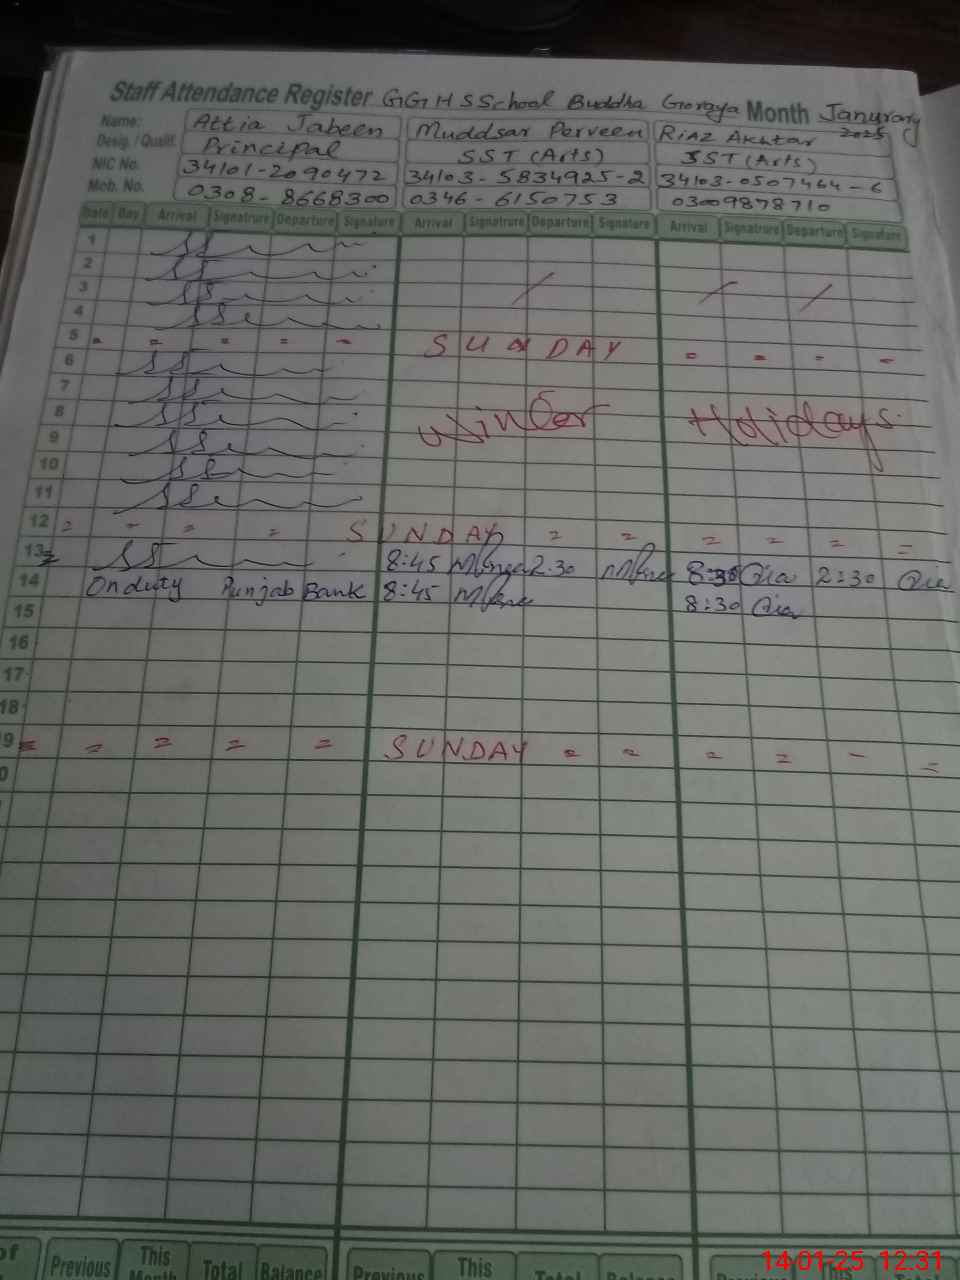 Staff Attendance Register GGHSSchool Buddha Goraya Month Janurary 2025
Name: Attia Jabeen Muddsar Perveen Riaz Akhtar
Desig. / Qualif. Principal SST (Arts) SST (Arts)
NIC No. 34101-2090472 34103-5834925-2 34103-0507464-6
Mob. No. 0308-8668300 0346-6150753 03009878710
Date Day Arrival Signatrure Departure Signature Arrival Signatrure Departure Signature Arrival Signatrure Departure Signature
1
2
3
4
5 - = = = - SUNDAY = - - -
6
7
8 Winter Holidays.
9
10
11
12 = - = = SUNDAY = = = = = =
13 8:45 2:30 8:30 2:30
14 On duty Punjab Bank 8:45 8:30
15
16
17
18
9 = = = = = SUNDAY = = = = - =
0
of Previous This Month Total Balance Previous This Total Balance Previous
14.01.25 12.31